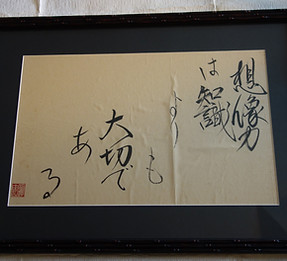 想像力
は知識
より
も
大切で
あ
る